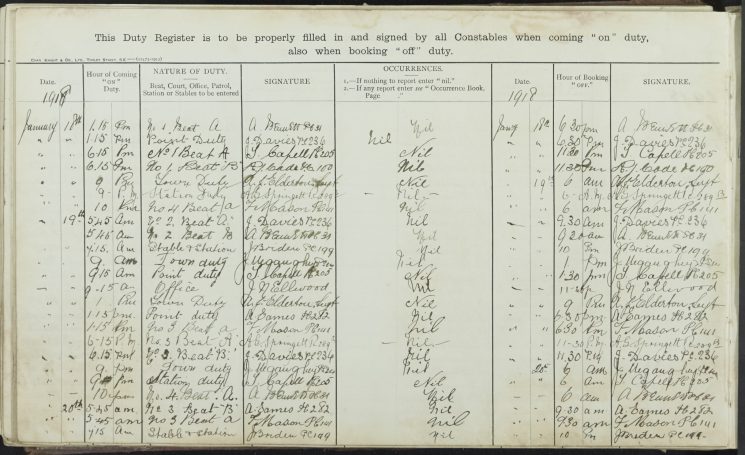 This Duty Register is to be properly filled in and signed by all Constables when coming "on" duty,
also when booking "off" duty.
Date. Hour of Coming "ON" Duty. NATURE OF DUTY. Beat, Court, Office, Patrol, Station or Stables to be entered SIGNATURE OCCURRENCES. 1.—If nothing to report enter "nil." 2.—If any report enter see "Occurrence Book, Page ." Date. Hour of Booking "OFF." SIGNATURE.
1918 1918
January 18th 1.15 Pm No 1 Beat A Nil Jany 18th 6.30 pm
" " Point Duty J Davies Pc 236 nil 6.30 Pm J Davies Pc 236
" " 6.15 Pm No 1 Beat A T Capell Pc 205 Nil 11.30 Pm T Capell Pc 205
" " 6.15 Pm No 1 Beat B Nil 11.30 Pm
" " 9 Pm Town Duty A. J. Elderton Supt Nil 19th 6 am A. J. Elderton Supt
" " 9 P.m Station Duty A.G. Springett — Nil — 6 A.M A.G. Springett
" " 10 Pm No 4 Beat A T Mason Pc 141 Nil 6 am T Mason Pc 141
" 19th 5.45 Am No 2 Beat A J Davies Pc 236 Nil 9.30 am J Davies Pc 236
5.45 am No 2 Beat B Nil 9.20 am
7.15 Am Stable & Station J Briden Pc 199 Nil 10 Pm J Briden Pc 199
9 am Town duty Nil 1 Pm
9.15 Am Point duty T Capell Pc 205 Nil 1.30 pm T Capell Pc 205
9.15 a.m Office J N Ellwood Nil J N Ellwood
1 Pm Town Duty A. J. Elderton Supt Nil 9 Pm A. J. Elderton Supt
1.15 pm Point duty A. Eames Nil 6.30 pm A. Eames
1.15 Pm No 3 Beat a T Mason Pc 141 nil 6.30 Pm T Mason Pc 141
6.15 P.M No 3 Beat A A.G. Springett — Nil — 11.30 P.M A.G. Springett
6.15 Pm No 3 Beat B J Davies Pc 236 Nil 11.30 J Davies Pc 236
9 pm Town duty Nil 20th 6 am
9 Pm Station duty T Capell Pc 205 Nil 6 am T Capell Pc 205
10 pm No. 4. Beat. A. Nil 6 am
20th 5.45 am No 3 Beat B A. Eames Nil 9.30 am A. Eames
5.45 am No 3 Beat A T Mason Pc 141 nil 9.30 am T Mason Pc 141
7.15 Am Stable & Station J Briden Pc 199 Nil 10 Pm J Briden Pc 199